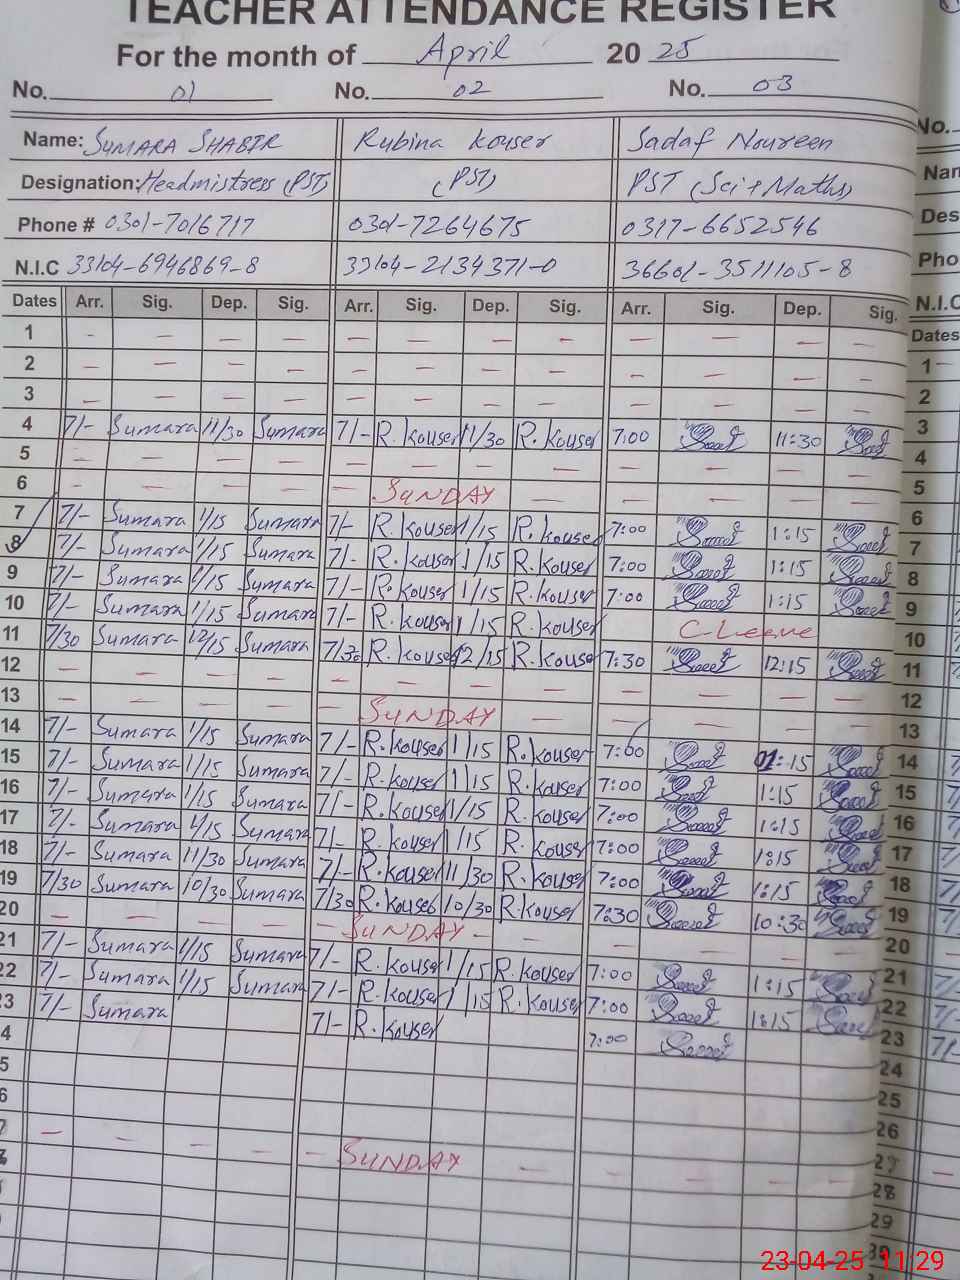 TEACHER ATTENDANCE REGISTER
For the month of April 20 25
No. 01 No. 02 No. 03
Name: SUMARA SHABIR Rubina Kouser Sadaf Noureen
Designation: Headmistress (PST) (PST) PST (Sci+Maths)
Phone # 0301-7016717 0301-7264675 0317-6652546
N.I.C 33104-6946869-8 33104-2134371-0 36601-3511105-8
Dates Arr. Sig. Dep. Sig. Arr. Sig. Dep. Sig. Arr. Sig. Dep. Sig.
1 - - - - - - - - - - - -
2 - - - - - - - - - - - -
3 - - - - - - - - - - - -
4 7/- Sumara 11/30 Sumara 7/- R.Kouser 11/30 R.Kouser 7:00 11:30
5 - - - - - - - - - - - -
6 - - - - - SUNDAY - - - - -
7 7/- Sumara 1/15 Sumara 7/- R.Kouser 1/15 R.Kouser 7:00 1:15
8 7/- Sumara 1/15 Sumara 7/- R.Kouser 1/15 R.Kouser 7:00 1:15
9 7/- Sumara 1/15 Sumara 7/- R.Kouser 1/15 R.Kouser 7:00 1:15
10 7/- Sumara 1/15 Sumara 7/- R.Kouser 1/15 R.Kouser C-Leeve
11 7/30 Sumara 12/15 Sumara 7/30 R.Kouser 12/15 R.Kouser 7:30 12:15
12 - - - - - - - - - - - -
13 - - - - - SUNDAY - - - - -
14 7/- Sumara 1/15 Sumara 7/- R.Kouser 1/15 R.Kouser 7:00 01:15
15 7/- Sumara 1/15 Sumara 7/- R.Kouser 1/15 R.Kouser 7:00 1:15
16 7/- Sumara 1/15 Sumara 7/- R.Kouser 1/15 R.Kouser 7:00 1:15
17 7/- Sumara 1/15 Sumara 7/- R.Kouser 1/15 R.Kouser 7:00 1:15
18 7/- Sumara 11/30 Sumara 7/- R.Kouser 11/30 R.Kouser 7:00 1:15
19 7/30 Sumara 10/30 Sumara 7/30 R.Kouser 10/30 R.Kouser 7:30 10:30
20 - - - - - SUNDAY - - - - -
21 7/- Sumara 1/15 Sumara 7/- R.Kouser 1/15 R.Kouser 7:00 1:15
22 7/- Sumara 1/15 Sumara 7/- R.Kouser 1/15 R.Kouser 7:00 1:15
23 7/- Sumara 7/- R.Kouser 7:00
4
5
6
7 - - - - - SUNDAY - - - - -
No.
Nam
Des
Pho
N.I.C
Dates
1
2
3
4
5
6
7
8
9
10
11
12
13
14
15
16
17
18
19
20
21
22
23 7/-
24
25
26
27
28
29
30
23-04-25 11:29